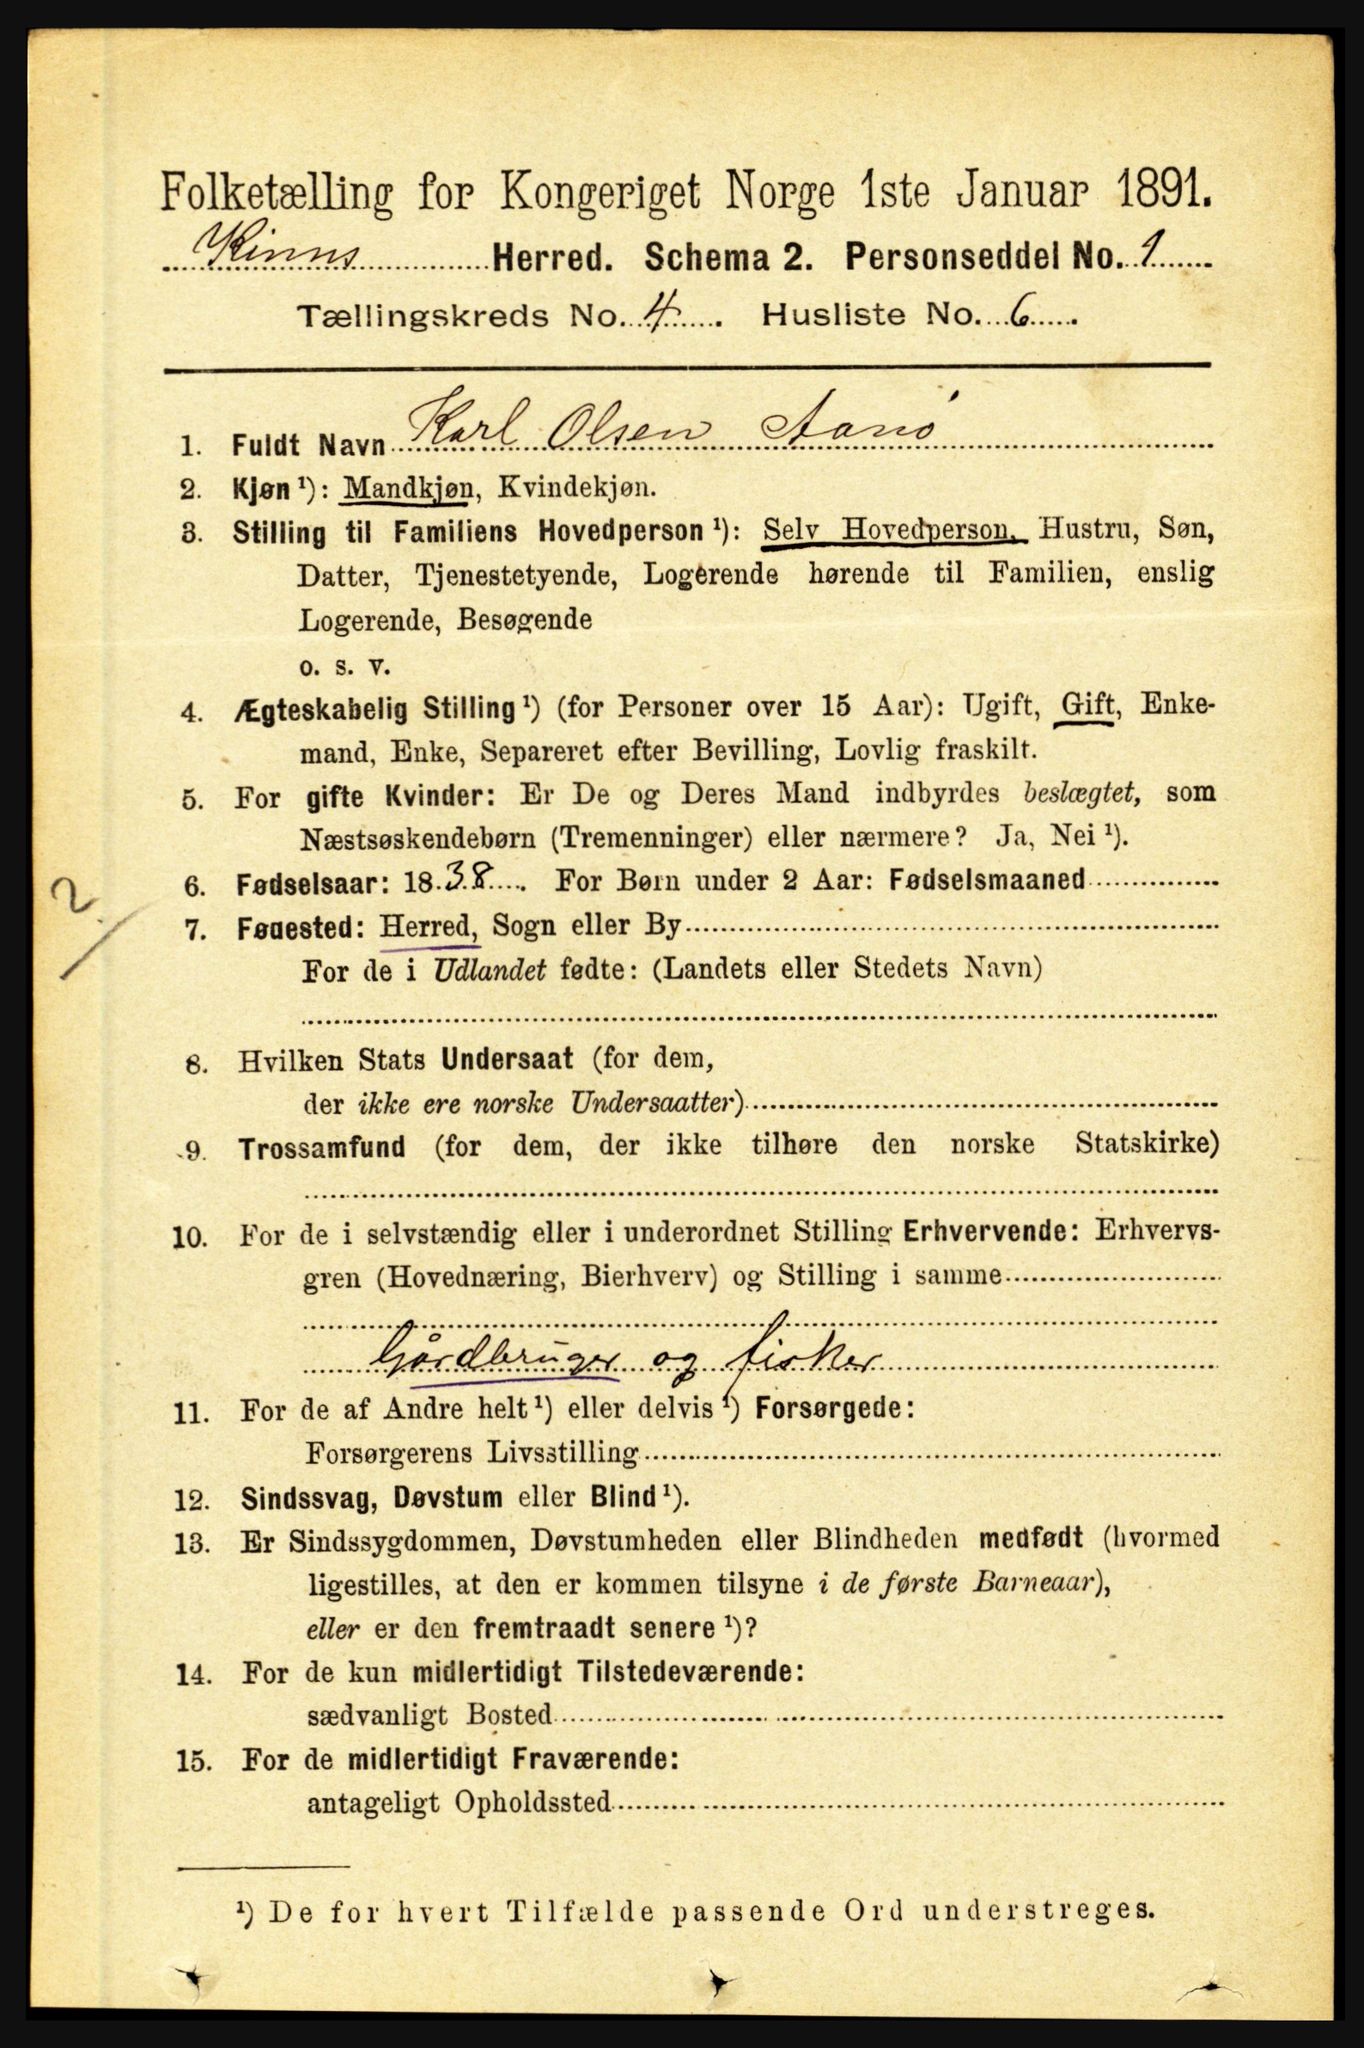 Folketælling for Kongeriget Norge 1ste Januar 1891.
Kinns Herred. Schema 2. Personseddel No. 1
Tællingskreds No. 4. Husliste No. 6.
1. Fuldt Navn Karl Olsen Aanø
2. Kjøn ¹): Mandkjøn, Kvindekjøn.
3. Stilling til Familiens Hovedperson ¹): Selv Hovedperson, Hustru, Søn,
Datter, Tjenestetyende, Logerende hørende til Familien, enslig
Logerende, Besøgende
o. s. v.
4. Ægteskabelig Stilling ¹) (for Personer over 15 Aar): Ugift, Gift, Enke-
mand, Enke, Separeret efter Bevilling, Lovlig fraskilt.
5. For gifte Kvinder: Er De og Deres Mand indbyrdes beslægtet, som
Næstsøskendebørn (Tremenninger) eller nærmere? Ja, Nei ¹).
2
6. Fødselsaar: 1838. For Børn under 2 Aar: Fødselsmaaned
7. Fødested: Herred, Sogn eller By
For de i Udlandet fødte: (Landets eller Stedets Navn)
8. Hvilken Stats Undersaat (for dem,
der ikke ere norske Undersaatter)
9. Trossamfund (for dem, der ikke tilhøre den norske Statskirke)
10. For de i selvstændig eller i underordnet Stilling Erhvervende: Erhvervs-
gren (Hovednæring, Bierhverv) og Stilling i samme
Gårdbruger og fisker
11. For de af Andre helt ¹) eller delvis ¹) Forsørgede:
Forsørgerens Livsstilling
12. Sindssvag, Døvstum eller Blind ¹).
13. Er Sindssygdommen, Døvstumheden eller Blindheden medfødt (hvormed
ligestilles, at den er kommen tilsyne i de første Barneaar),
eller er den fremtraadt senere ¹)?
14. For de kun midlertidigt Tilstedeværende:
sædvanligt Bosted
15. For de midlertidigt Fraværende:
antageligt Opholdssted
¹) De for hvert Tilfælde passende Ord understreges.